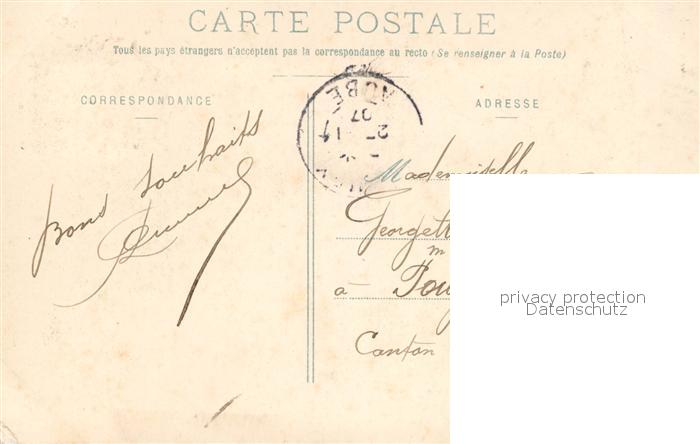 CARTE POSTALE
Tous les pays étrangers n'acceptent pas la correspondance au recto (Se renseigner à la Poste)
CORRESPONDANCE
ADRESSE
AUBE
07
27
Bons souhaits
Mademoiselle
Georgett
m
à
Canton
privacy protection
Datenschutz